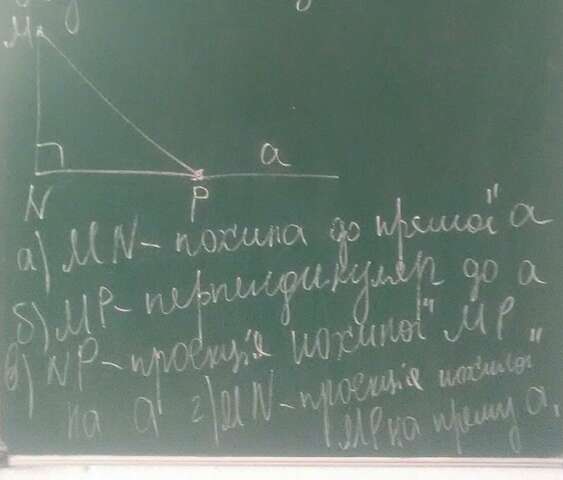 M
a
N P
а) MN - похила до прямої а
б) MP - перпендикуляр до а
в) NP - проекція похилої MP
на а г) MN - проекція похилої
MP на пряму а.